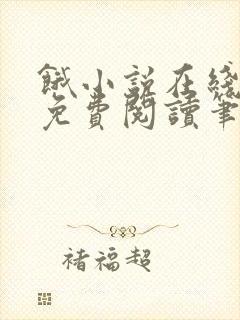 餓小說在綫
免費閱讀筆
褚福超